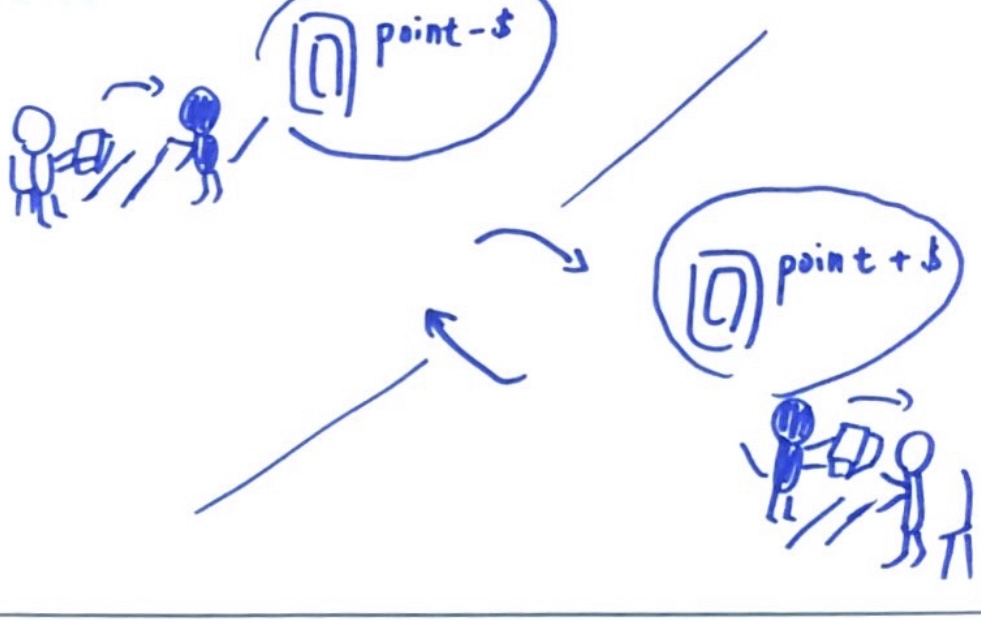 point - $
point + $